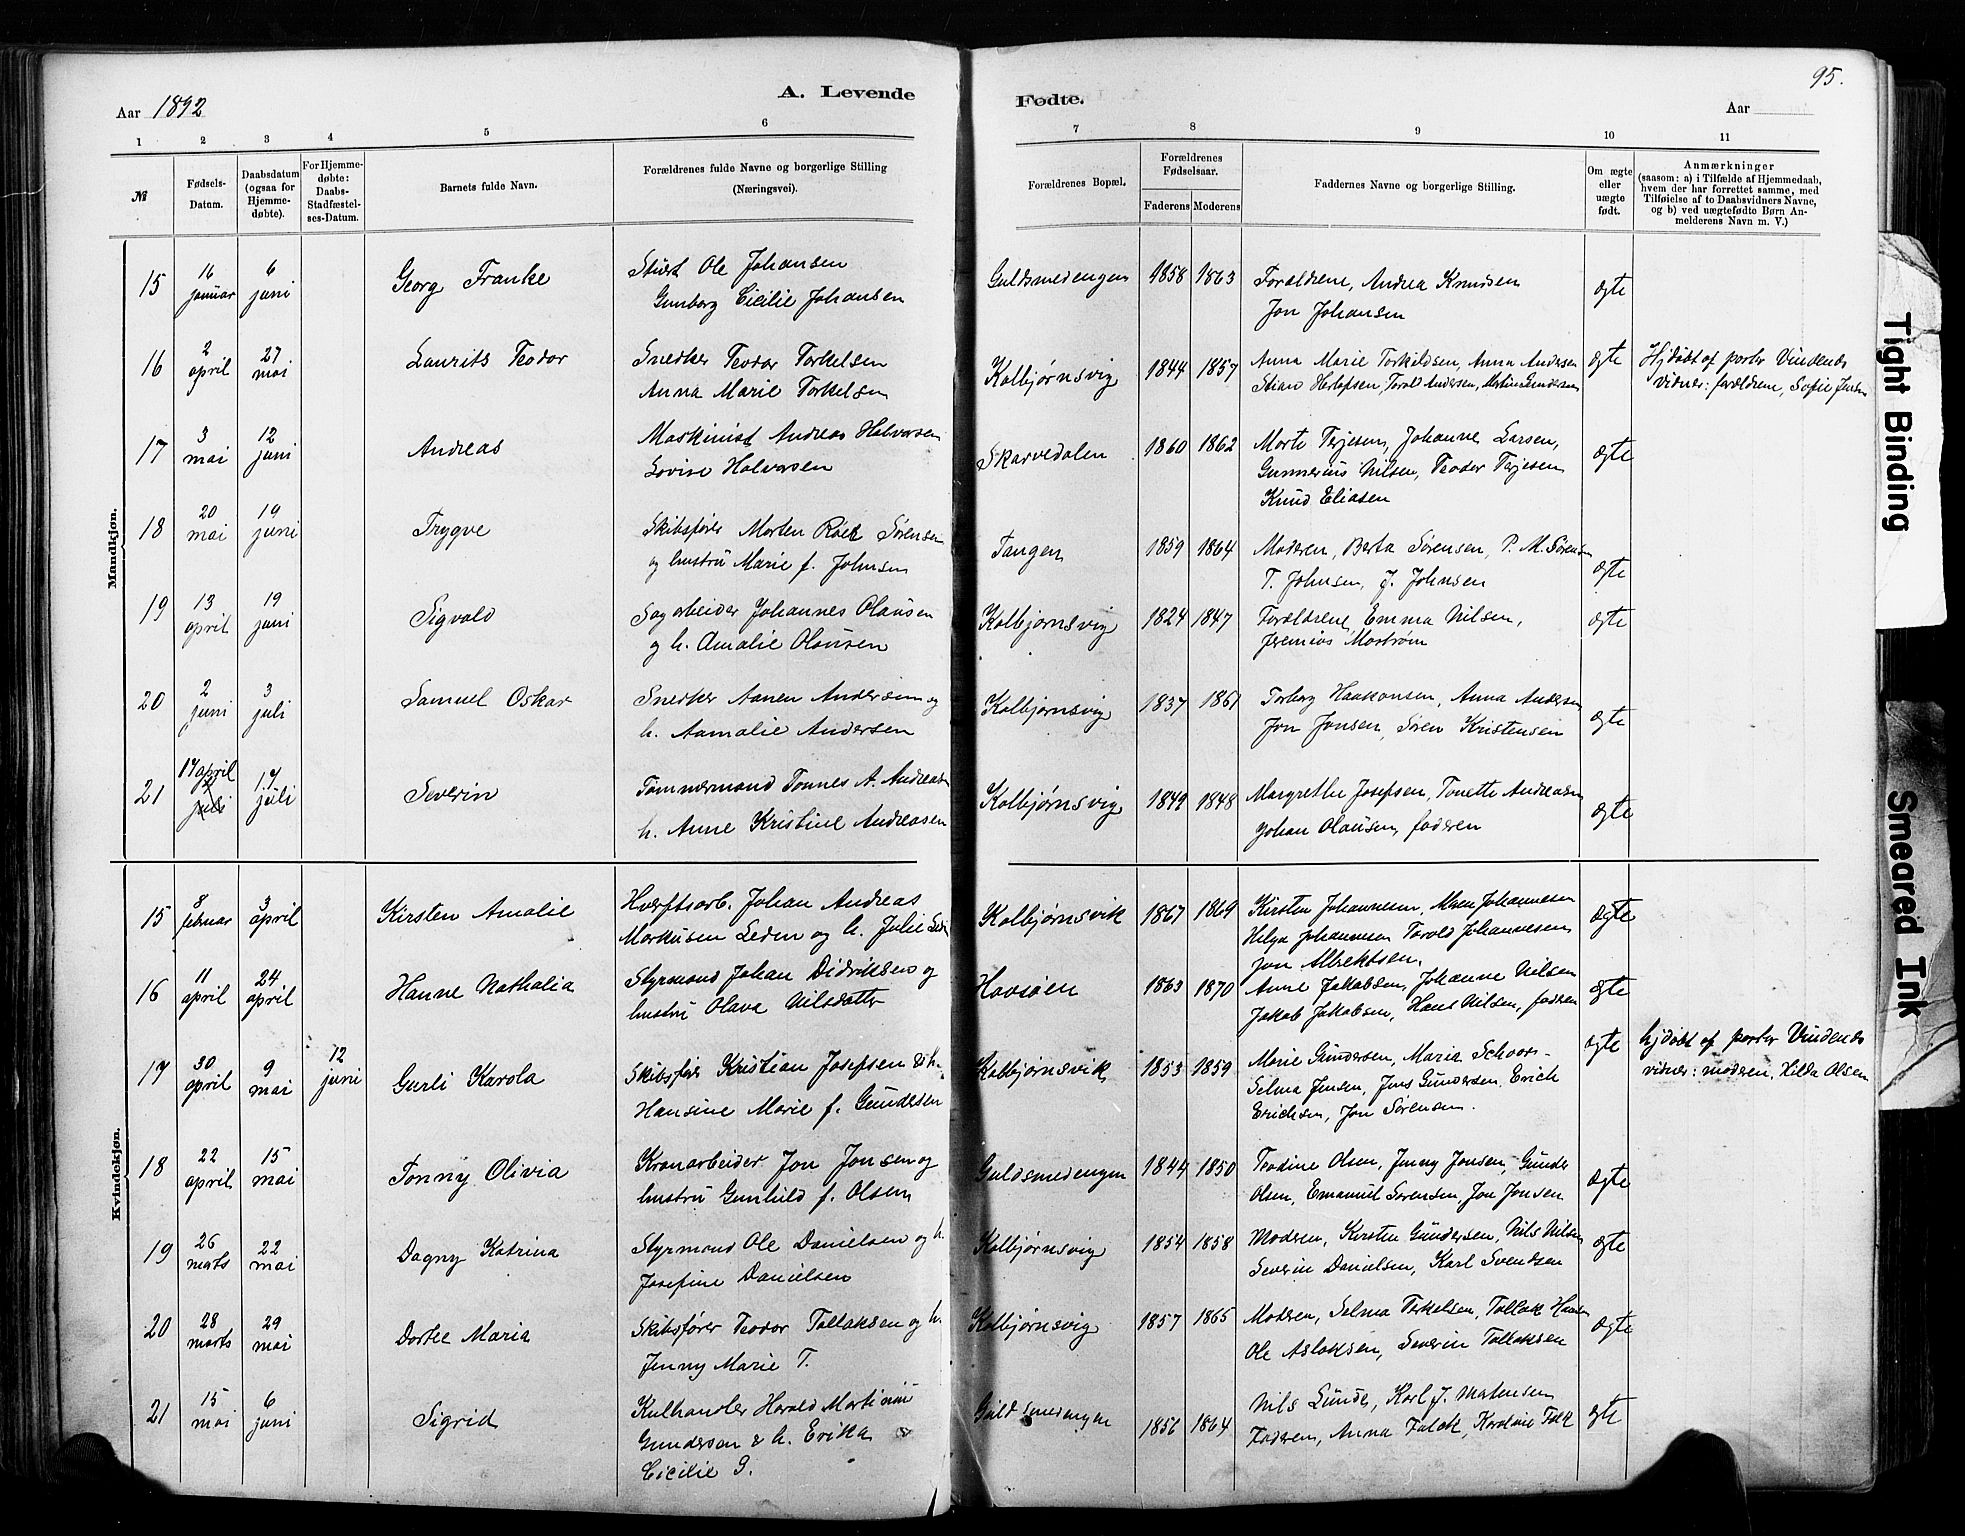 95.
Aar 1892
A. Levende
Fødte.
Aar
1 2 3 4 5 6 7 8 9 10 11
№
Fødsels-Datum.
Daabsdatum (ogsaa for Hjemme-døbte).
For Hjemme-døbte: Daabs-Stadfæstel-ses-Datum.
Barnets fulde Navn.
Forældrenes fulde Navne og borgerlige Stilling (Næringsvei).
Forældrenes Bopæl.
Forældrenes Fødselsaar.
Faderens Moderens
Faddernes Navne og borgerlige Stilling.
Om ægte eller uægte født.
Anmærkninger
(saasom: a) i Tilfælde af Hjemmedaab,
hvem der har forrettet samme, med
Tilføielse af to Daabsvidners Navne,
og b) ved uægtefødte Børn An-
melderens Navn m. V.)
Mandkjøn.
15 16 januar 6 juni Georg Franke Stuert Ole Johansen
Gunborg Cicilie Johansen
Guldsmedengen 1858 1863 Forældrene, Andrea Knudsen
Jon Johansen
ægte
16 2 april 27 mai Laurits Teodor Snedker Teodor Torkelsen
Anna Marie Torkelsen
Kolbjørnsvig 1844 1857 Anna Marie Torkildsen, Anna Andersen
Stian Herlofsen, Torald Andersen, Martin Gundersen
ægte
Hjdøbt af porter Vindends
vidner: forældrene, Sofie Jensen
17 3 mai 12 juni Andreas Maskinist Andreas Halvorsen
Lovise Halvorsen
Skarvedalen 1860 1862 Marte Terjesen, Johanne Larsen,
Gunnerius Nilsen, Teodor Terjesen
Knud Eliasen
ægte
18 20 mai 19 juni Trygve Skibsfører Morten Roed Sørensen
og hustru Marie f. Johnsen
Tangen 1859 1864 Moderen, Berta Sørensen, P. M. Sørensen
T. Johnsen, J. Johnsen
ægte
19 13 april 19 juni Sigvald Sagarbeider Johannes Olausen
og h. Amalie Olausen
Kolbjørnsvig 1824 1847 Forældrene, Emma Nilsen,
Jeremias Mostrøm
ægte
20 2 juni 3 juli Samuel Oskar Snedker Aanen Andersen og
h. Aamalie Andersen
Kolbjørnsvig 1837 1861 Torborg Haakonsen, Anna Andersen
Jon Jonsen, Søren Kristensen
ægte
21 17 april juli 17 juli Severin Tømmermand Tonnes A. Andreasen
h. Anne Kristine Andreasen
Kolbjørnsvig 1849 1848 Margrethe Josefsen, Tonette Andreasen
Johan Olausen, faderen
ægte
Kvindekjøn.
15 8 februar 3 april Kirsten Amalie Hverftsarb. Johan Andreas
Markusen Leden og h. Julie
Kolbjørnsvik 1867 1869 Kirsten Johannesen, Johannesen
Helga Johannesen Torold Johannesen
Jon Albrektsen.
ægte
16 11 april 24 april Hanne Nathalia Styrmand Johan Didriksen og
hustru Olava Nilsdatter
Havsøen 1863 1870 Anne Jakobsen, Johanne Nilsen
Jakob Jakobsen, Hans Nilsen, faderen
ægte
17 30 april 9 mai 12 juni Gurli Karola Skibsfører Kristian Josefsen & h.
Hansine Marie f. Gundersen
Kolbjørnsvik 1853 1859 Marie Gundersen, Maria Schoos-
Selma Jensen, Jens Gundersen, Erich
Erichsen, Jon Sørensen.
ægte
hjdøbt af porter Vindends
vidner: moderen, Hilda Olsen
18 22 april 15 mai Tonny Olivia Kranarbeider Jon Jonsen og
hustru Gunhild f. Olsen
Guldsmedengen 1844 1850 Teodine Olsen, Jenny Jonsen, Gunder
Olsen, Emanuel Sørensen, Jon Jonsen
ægte
19 26 mats 22 mai Dagny Katrina Styrmand Ole Danielsen og h.
Josefine Danielsen
Kolbjørnsvig 1854 1858 Moderen, Kirsten Gundersen, Nils Nilsen
Severin Danielsen, Karl Svendsen
ægte
20 28 marts 29 mai Dortee Maria Skibsfører Teodor Tallaksen og h.
Jenny Marie T.
Kolbjørnsvig 1857 1865 Moderen, Selma Terkelsen, Tallak Hansen
Ole Aslaksen, Severin Tallaksen
ægte
21 15 mai 6 juni Sigrid Kulhandler Harald Martinius
Gundersen & h. Erika
Cicilie G.
Guldsmedengen 1856 1864 Nils Lunde, Karl J. Matensen
Faderen, Anna Falck, Karoline Falck
ægte
Tight Binding
Smeared Ink